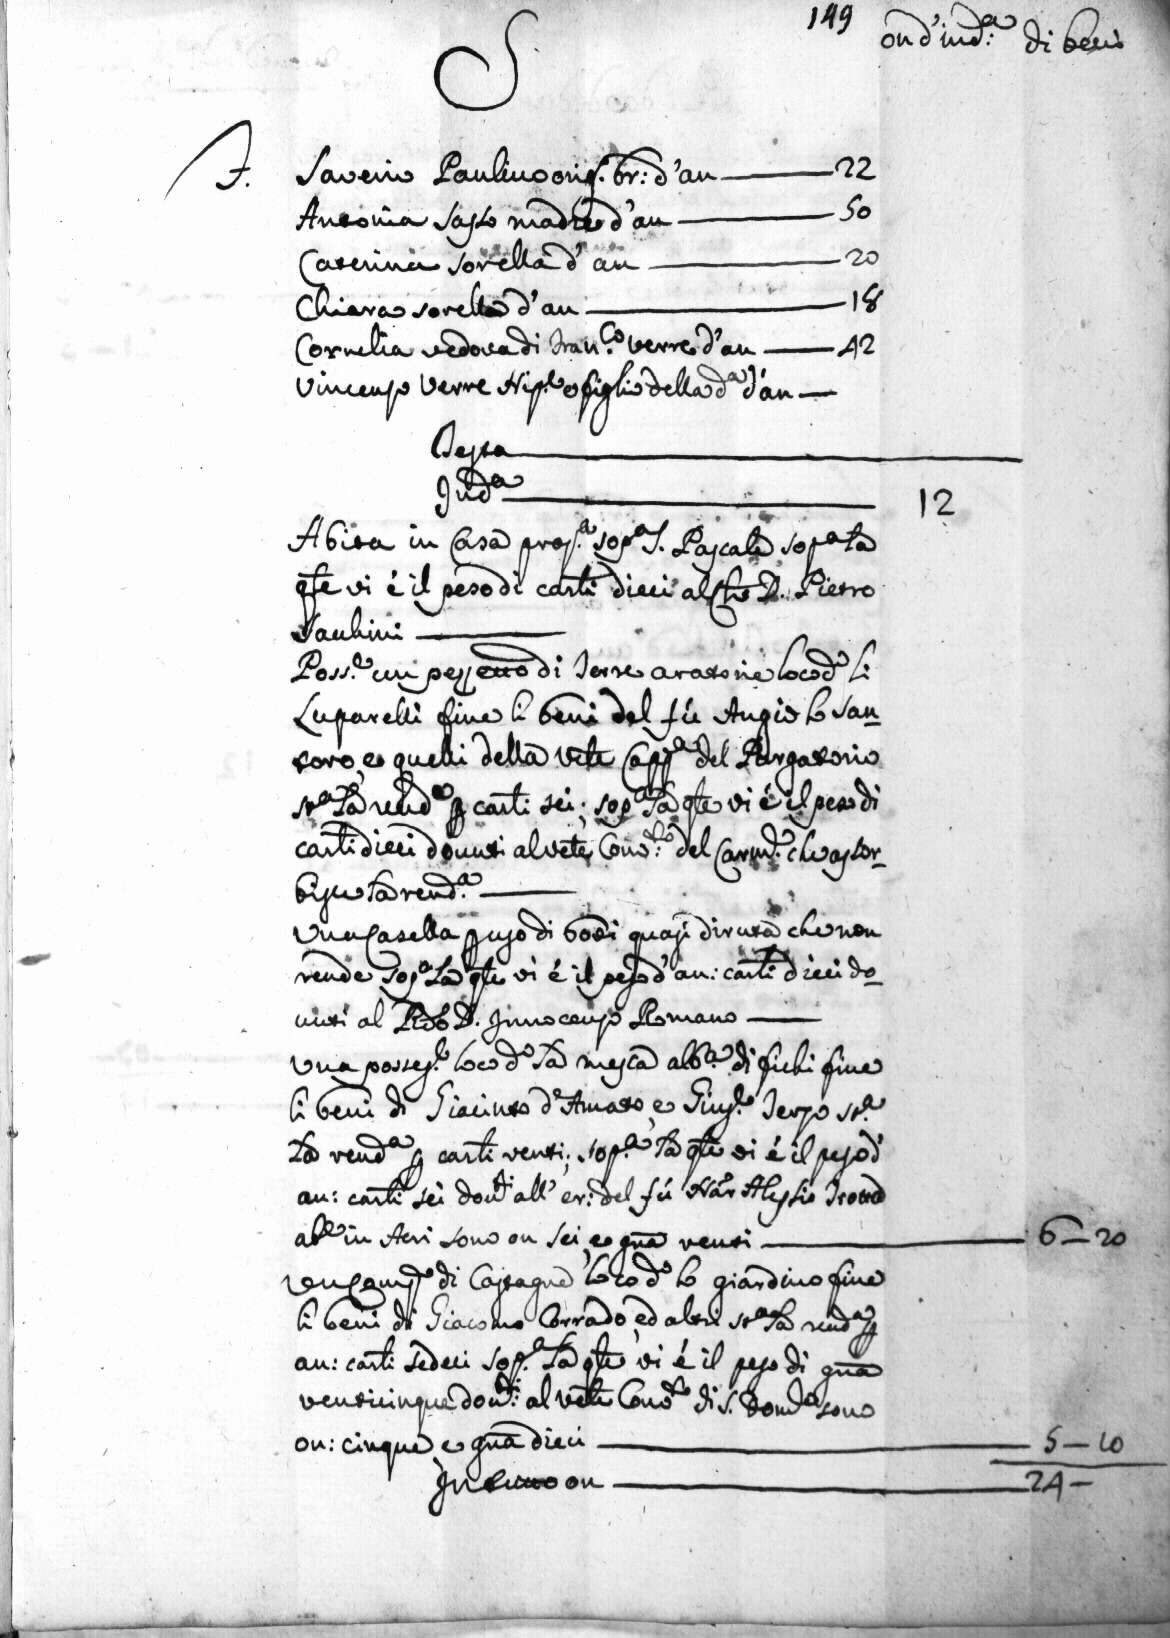 149
on d'ind.a di beni
S
F. Saverio Paulino orig. br: d'an 22
Antonia Sasso madre d'an 50
Caterina sorella d'an 20
Chiara sorella d'an 18
Cornelia vedova di Fran.co Verre d'an 42
Vincenzo Verre Nip.e e figlio della d.a d'an
Testa
Ind.a 12
Abita in Casa prop.a sop.a S. Pascale sop.a la
qle vi é il peso di carli dieci al D. Pietro
Possa un pezzetto di Terre aratorie loco d.o li
Luparelli fine li beni del fú Angiolo San-
toro, e quelli della Vetle Capp.a del Purgatorio
st.a la rend.a p carli sei; sop.a la qle vi é il peso di
carli dieci dovuti al Vetle Conv.to del Carm.e che assor-
bisce la rend.a
Una Casella p uso di bovi quasi diruta che non
rende sop.a la qle vi é il peso d'an: carli dieci do-
vuti al D. Innocenzo Romano
Una possess.e loco d.o la mesca alb.a di fichi fine
li beni di Giacinto d'Amato, e Gius.e Terzo st.a
la rend.a p carli venti; sop.a la qle vi é il peso d'
an: carli sei dov.ti all' er: del fú Nar Alessio
in Acri sono on sei, e gna venti 6-20
Un Camp.o di Castagne loco d.o lo giardino fine
li beni di Giacomo Corrado, ed altri st.a la rend.a p
an: carli sedeci sop.a la qle vi é il peso di gna
venticinque dov.ti al Vetle Conv.to di S. Dom.o sono
on: cinque e gna dieci 5-10
In tutto on 24-